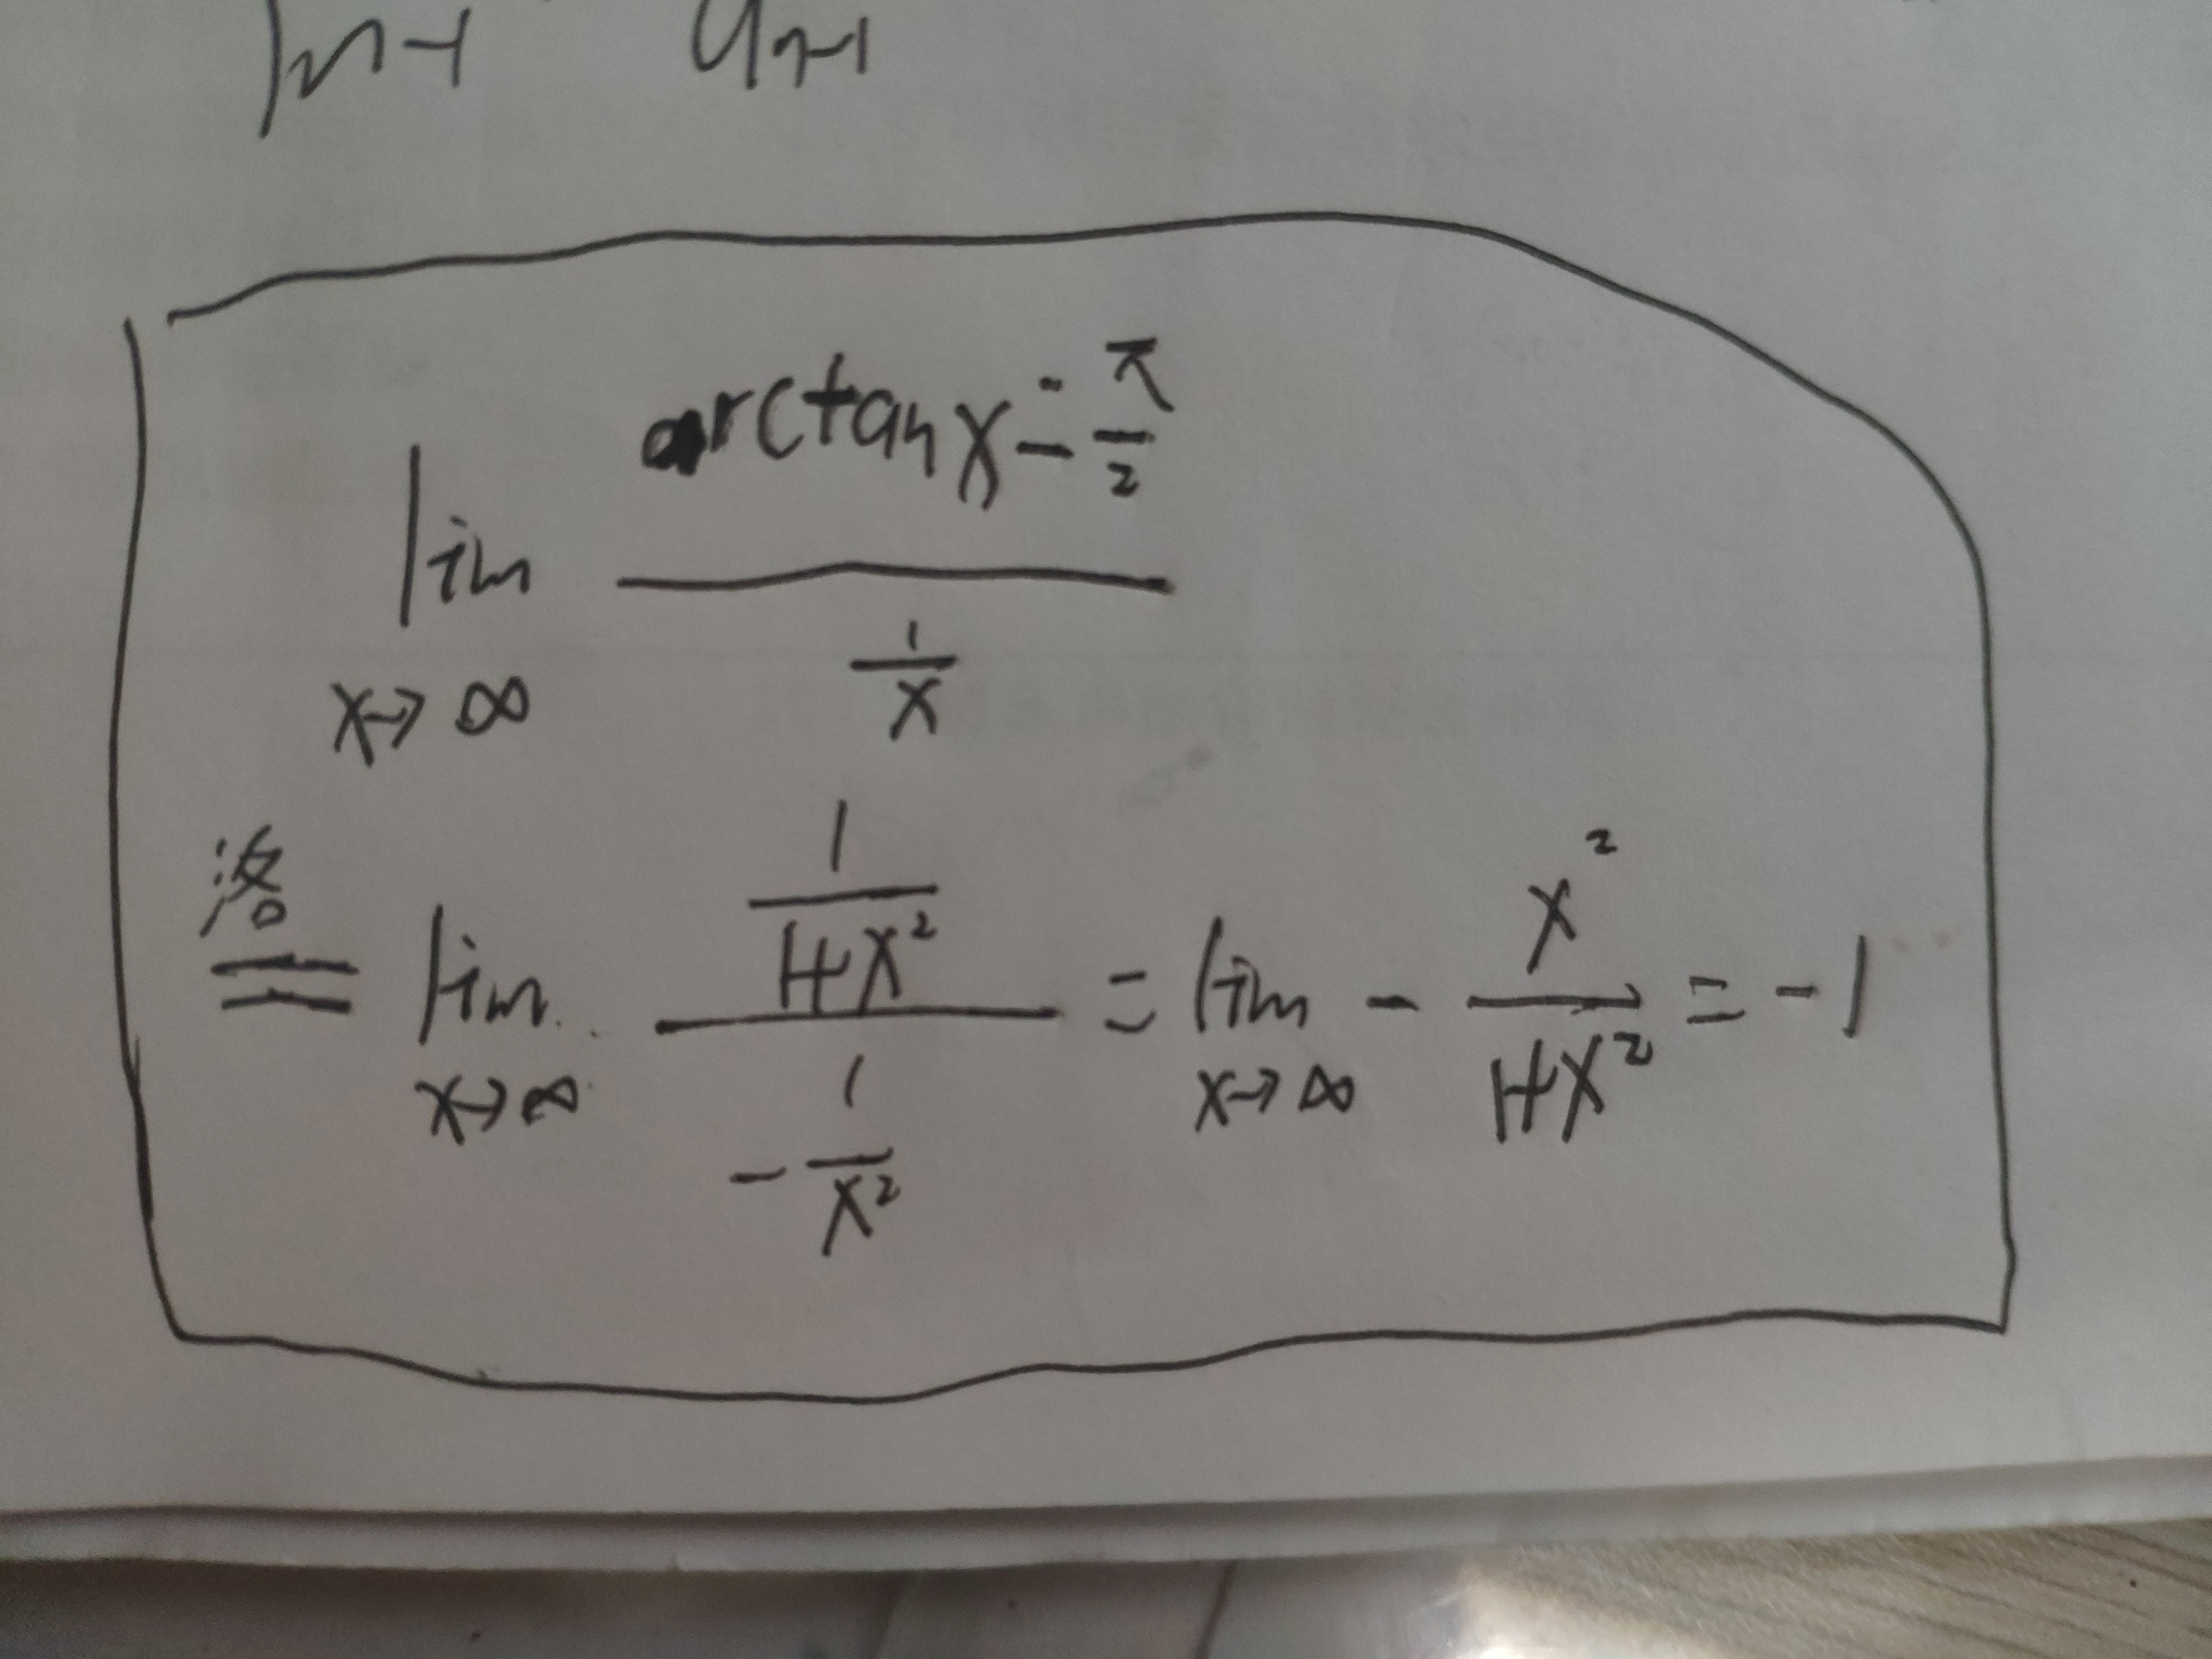 lim x→∞ (arctan x - π/2) / (1/x)
洛
= lim x→∞ (1/(1+x²)) / (-1/x²) = lim x→∞ - x²/(1+x²) = -1